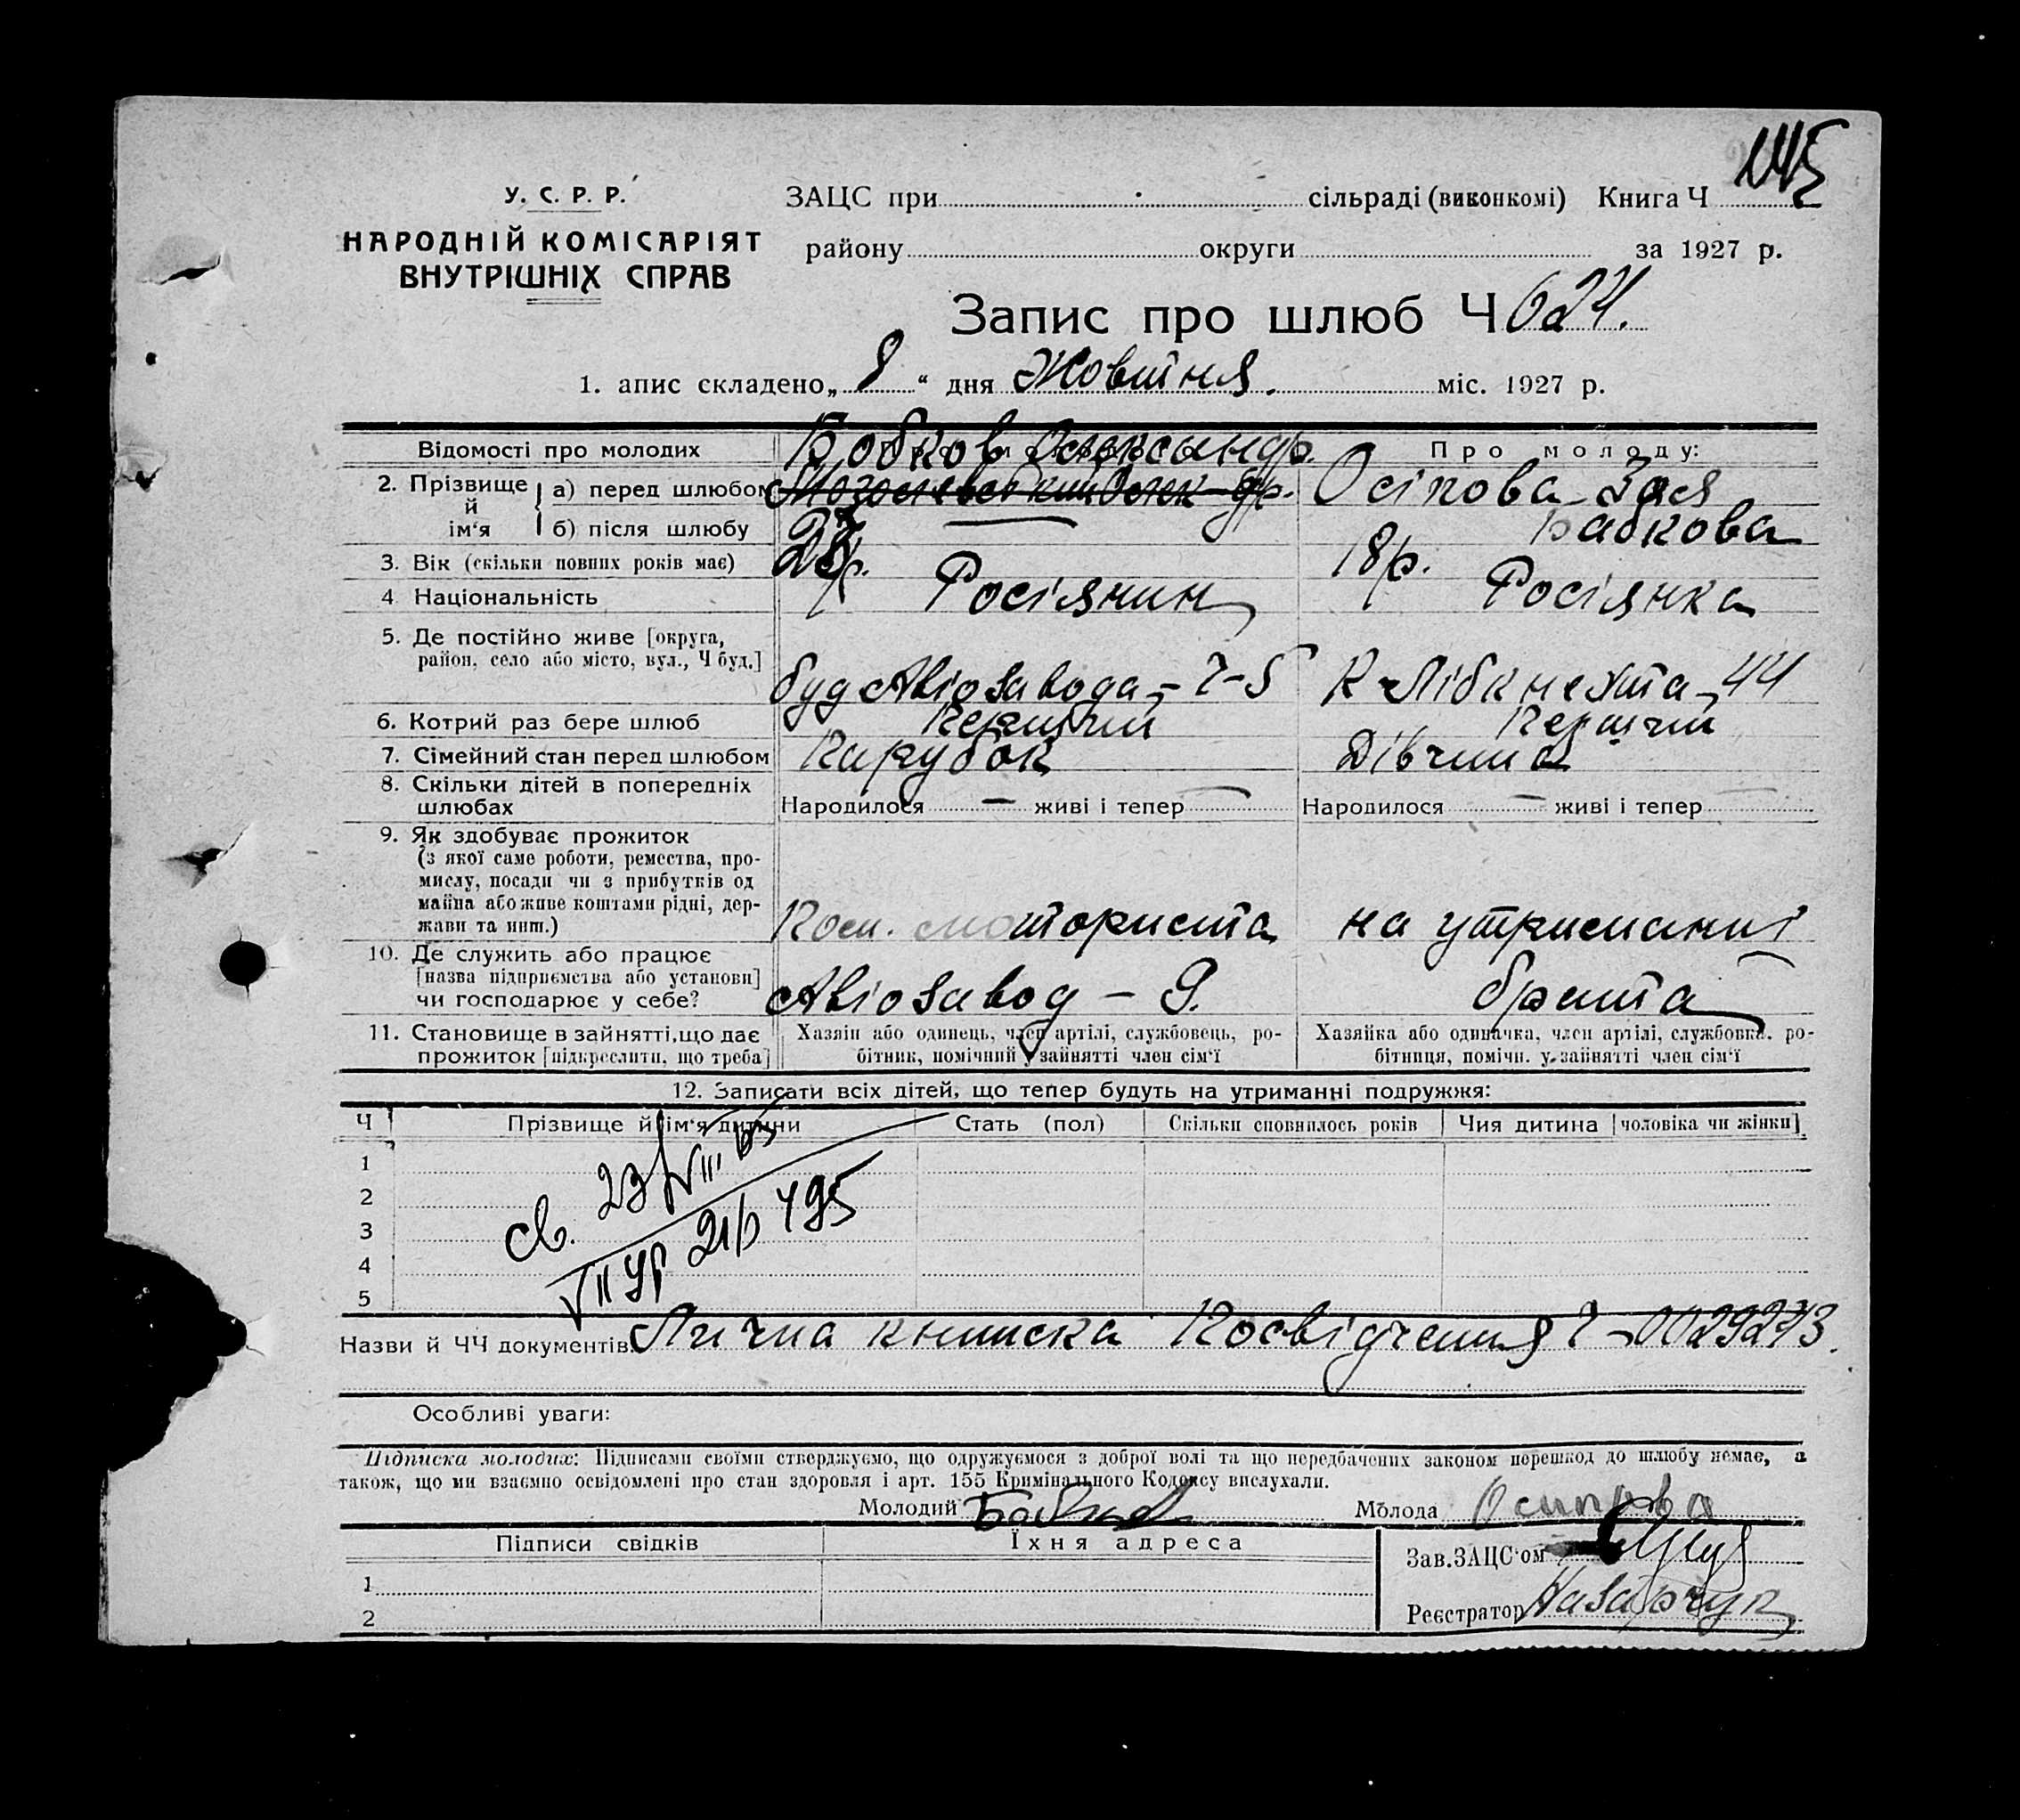 145
У. С. Р. Р.
НАРОДНІЙ КОМІСАРІЯТ
ВНУТРІШНІХ СПРАВ
ЗАЦС при сільраді (виконкомі) Книга Ч
району округи за 1927 р.
Запис про шлюб Ч 624.
1. апис складено „ 8 “ дня Жовтня. міс. 1927 р.
Відомості про молодих Бобков Олександр. Про молоду:
2. Прізвище й ім'я
а) перед шлюбом Осіпова Зоя
б) після шлюбу Бабкова
3. Вік (скільки повних років має) 18 р.
4 Національність Росіянин Росіянка
5. Де постійно живе [округа,
район, село або місто, вул., Ч буд.]
буд Авіозавода - 7-5 К Лібкнехта - 44
6. Котрий раз бере шлюб Перший Перший
7. Сімейний стан перед шлюбом Парубок Дівчина
8. Скільки дітей в попередніх
шлюбах
Народилося — живі і тепер — Народилося — живі і тепер —
9. Як здобуває прожиток
(з якої саме роботи, ремества, про-
мислу, посади чи з прибутків од
майна або живе коштами рідні, дер-
жави та инш.)
Пом. моториста на утриманні
10. Де служить або працює
[назва підприємства або установи]
чи господарює у себе?
Авіозавод - 9. брата
11. Становище в зайнятті, що дає
прожиток [підкреслити, що треба]
Хазяїн або одинець, член артілі, службовець, ро-
бітник, помічний у зайнятті член сім'ї
Хазяйка або одиначка, член артілі, службовка, ро-
бітниця, помічн. у зайнятті член сім'ї
12. Записати всіх дітей, що тепер будуть на утриманні подружжя:
Ч Прізвище й ім'я дитини Стать (пол) Скільки сповнилось років Чия дитина [чоловіка чи жінки]
1
2
3
4
5
св. 23/VIII
495
Назви й ЧЧ документів: Лична книжка Посвідчення Ч - 0029273.
Особливі уваги:
Підписка молодих: Підписами своїми стверджуємо, що одружуємося з доброї волі та що передбачених законом перешкод до шлюбу немає, а
також, що ми взаємно освідомлені про стан здоровля і арт. 155 Кримінального Кодексу вислухали.
Молодий Бобков Молода Осипова
Підписи свідків Їхня адреса
Зав. ЗАЦС'ом
1
Реєстратор Назарчук
2